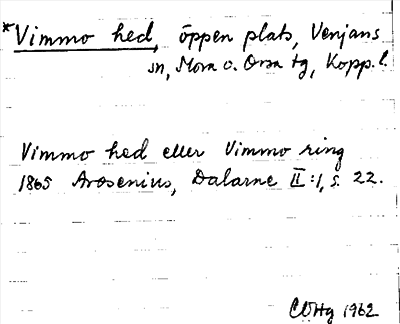 *Vimmo hed, öppen plats, Venjans
sn, Mora o. Orsa tg, Kopp. l.
Vimmo hed eller Vimmo ring
1865 Arosenius, Dalarne II:1, s. 22.
CWHg 1962